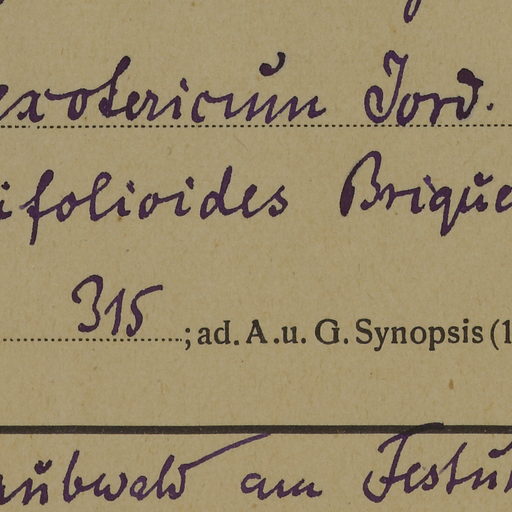 exotericum Jord.
ifolioides Brique
315 ; ad. A. u. G. Synopsis (1
aubwald am Festu